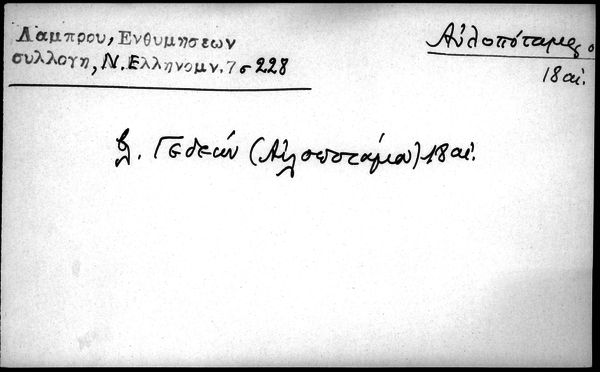 Λαμπρου, Ενθυμησεων
συλλογη, Ν. Ελληνομν. 7 σ 228
Αὐλοπόταμος
18 αἰ.
βλ. Γεδεών (Αὐλοπόταμο) 18 αἰ.